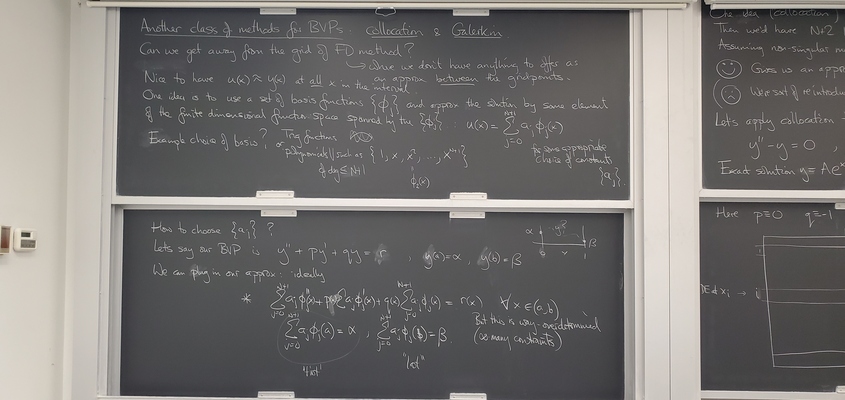 Another class of methods for BVPs: collocation & Galerkin
Can we get away from the grid of FD method?
↳ where we don't have anything to offer as
an approx between the gridpoints.
Nice to have u(x) ≈ y(x) at all x in the interval.
One idea is to use a set of basis functions {ϕⱼ} and approx the solution by some element
of the finite dimensional function space spanned by the {ϕⱼ} : u(x) = Σ_{j=0}^{N+1} aⱼ ϕⱼ(x)
Example choice of basis? Trig functions
or polynomials such as {1, x, x², ..., x^{N+1}}
of deg ≤ N+1
ϕ₂(x)
for some appropriate
choice of constants
{aⱼ}.
How to choose {aⱼ} ?
Lets say our BVP is y'' + py' + qy = r , y(a) = α , y(b) = β
α y? β
We can plug in our approx: ideally
* Σ_{j=0}^{N+1} aⱼϕⱼ''(x) + p(x) Σ aⱼϕⱼ'(x) + q(x) Σ_{j=0}^{N+1} aⱼϕⱼ(x) = r(x) ∀ x ∈ (a,b)
Σ_{j=0}^{N+1} aⱼϕⱼ(a) = α , Σ_{j=0}^{N+1} aⱼϕⱼ(b) = β.
But this is way-overdetermined
(∞ many constraints)
"first" "last"
One idea (collocation)
Then we'd have N+2
Assuming non-singular
Gives us an appr
We're sort of reintrodu
Lets apply collocation
y'' - y = 0 ,
Exact solution y = Ae^x
Here p≡0 q≡-1